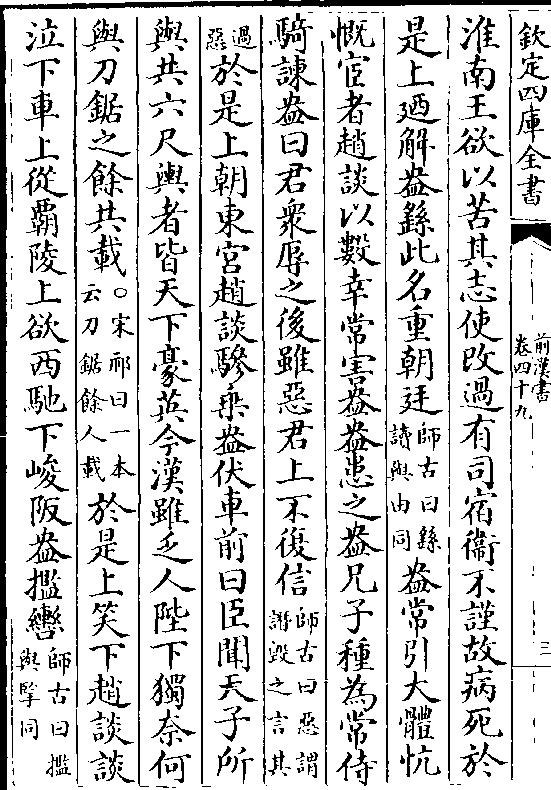 欽定四庫全書
前漢書
卷四十九
三
淮南王欲以苦其志使改過有司宿衞不謹故病死於
是上廼解盎繇此名重朝廷師古曰繇讀與由同盎常引大體忼
慨宦者趙談以數幸常害盎盎患之盎兄子種為常侍
騎諫盎曰君衆辱之後雖惡君上不復信師古曰惡謂譖毀之言其
過惡於是上朝東宮趙談驂乗盎伏車前曰臣聞天子所
與共六尺輿者皆天下豪英今漢雖乏人陛下獨奈何
與刀鋸之餘共載○宋祁曰一本云刀鋸餘人載於是上笑下趙談談
泣下車上從霸陵上欲西馳下峻阪盎擥轡師古曰擥與擥同